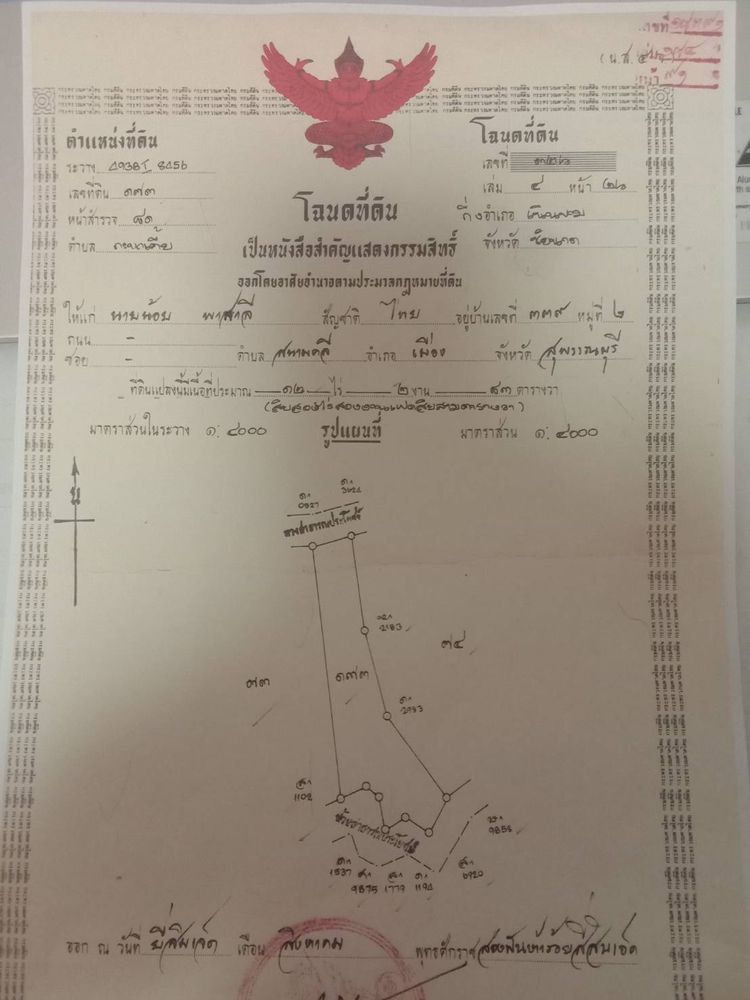 เลขที่
(น.ส. ๔
หน้า ๙๑
ตำแหน่งที่ดิน
ระวาง 4938 I 8456
เลขที่ดิน ๑๗๓
หน้าสำรวจ ๘๑
ตำบล
โฉนดที่ดิน
เลขที่
เล่ม ๔ หน้า ๒๖
กิ่งอำเภอ
จังหวัด
โฉนดที่ดิน
เป็นหนังสือสำคัญแสดงกรรมสิทธิ์
ออกโดยอาศัยอำนาจตามประมวลกฎหมายที่ดิน
ให้แก่ นายน้อย พาสาลี สัญชาติ ไทย อยู่บ้านเลขที่ ๓๓๙ หมู่ที่ ๒
ถนน -
ซอย - ตำบล สนามคลี อำเภอ เมือง จังหวัด สุพรรณบุรี
ที่ดินแปลงนี้มีเนื้อที่ประมาณ ๑๒ ไร่ ๒ งาน ๘๓ ตารางวา
(สิบสองไร่สองงานแปดสิบสามตารางวา)
มาตราส่วนในระวาง ๑:๔๐๐๐ รูปแผนที่ มาตราส่วน ๑:๔๐๐๐
น
0627
3624
ทางสาธารณประโยชน์
2183
๗๔
๗๓
๑๗๓
2983
1102
ห้วยสาธารณประโยชน์
9856
1537
9875
1779
1194
6920
ออก ณ วันที่ ยี่สิบเจ็ด เดือน สิงหาคม พุทธศักราช สองพันห้าร้อยสี่สิบเอ็ด